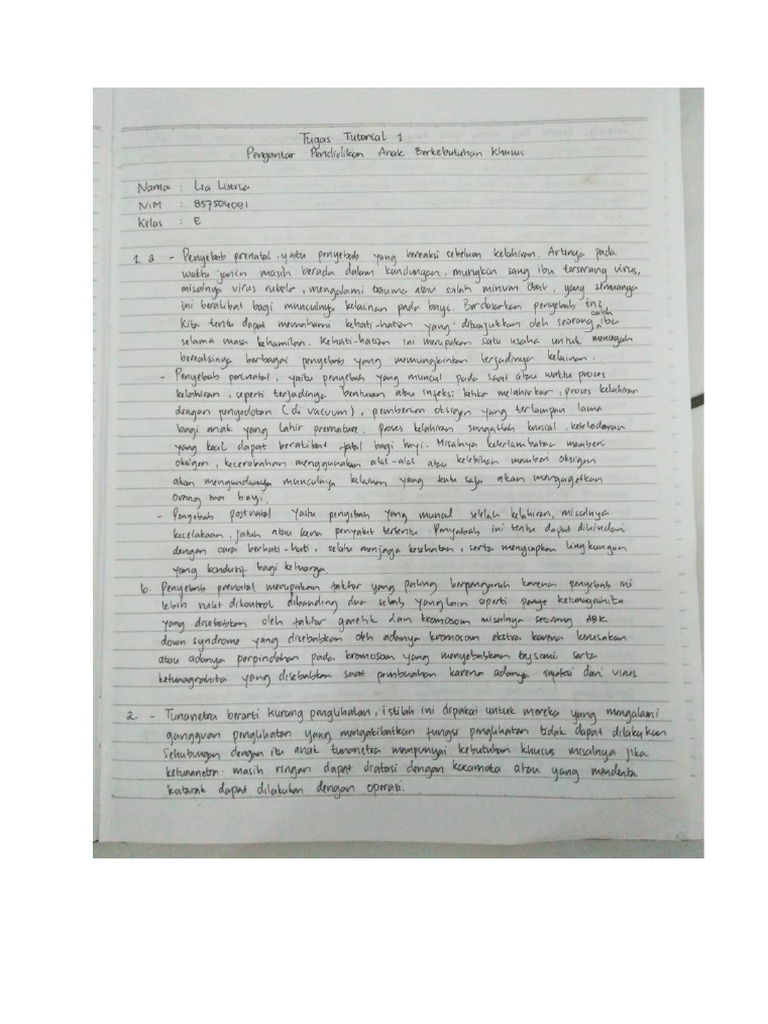 Tugas Tutorial 1
Pengantar Pendidikan Anak Berkebutuhan Khusus
Nama : Lia Liseria
NIM : 857504091
Kelas : E
1. a - Penyebab prenatal, yaitu penyebab yang bereaksi sebelum kelahiran. Artinya pada
waktu janin masih berada dalam kandungan, mungkin sang ibu terserang virus,
misalnya virus rubela, mengalami trauma atau salah minum obat, yang semuanya
ini berakibat bagi munculnya kelainan pada bayi. Berdasarkan penyebab ini,
kita tentu dapat memahami kehati-hatian yang ditunjukkan oleh seorang calon ibu
selama masa kehamilan. Kehati-hatian ini merupakan satu usaha untuk mencegah
bereaksinya berbagai penyebab yang memungkinkan terjadinya kelainan.
- Penyebab perinatal, yaitu penyebab yang muncul pada saat atau waktu proses
kelahiran, seperti terjadinya benturan atau infeksi ketika melahirkan, proses kelahiran
dengan penyedotan (di vacuum), pemberian oksigen yang terlampau lama
bagi anak yang lahir premature. Proses kelahiran sangatlah krusial, keteledoran
yang kecil dapat berakibat fatal bagi bayi. Misalnya keterlambatan memberi
oksigen, kecerobohan menggunakan alat-alat atau kelebihan memberi oksigen
akan mengundang munculnya kelainan yang tentu saja akan mengagetkan
orang tua bayi.
- Penyebab postnatal yaitu penyebab yang muncul setelah kelahiran, misalnya
kecelakaan, jatuh atau kena penyakit tertentu. Penyebab ini tentu dapat dihindari
dengan cara berhati-hati, selalu menjaga kesehatan, serta menyiapkan lingkungan
yang kondusif bagi keluarga.
b. Penyebab prenatal merupakan faktor yang paling berpengaruh karena penyebab ini
lebih sulit dikontrol dibanding dua sebab yang lain seperti ketunagrahita
yang disebabkan oleh faktor genetik dan kromosom misalnya seorang ABK
down syndrome yang disebabkan oleh adanya kromosom ekstra karena kerusakan
atau adanya perpindahan pada kromosom yang menyebabkan serta
ketunagrahita yang disebabkan saat pembuahan karena adanya infeksi dari virus
2. - Tunanetra berarti kurang penglihatan, istilah ini dipakai untuk mereka yang mengalami
gangguan penglihatan yang mengakibatkan fungsi penglihatan tidak dapat dilakukan
Sehubungan dengan itu anak tunanetra mempunyai kebutuhan khusus misalnya jika
ketunanetra masih ringan dapat diatasi dengan kacamata atau yang menderita
katarak dapat dilakukan dengan operasi.